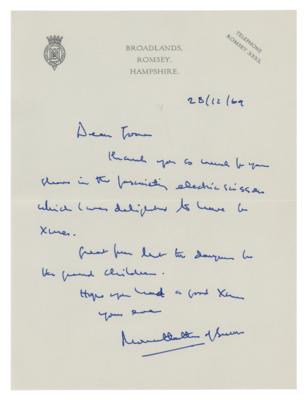 BROADLANDS,
ROMSEY,
HAMPSHIRE.
TELEPHONE
ROMSEY 3333.
28/12/69
Dear
Thank you so much for your
share in the fascinating electric scissors
which I was delighted to have for
Xmas.
Great fun but too dangerous for
the grand children.
Hope you had a good Xmas
Yours ever
Mountbatten of Burma